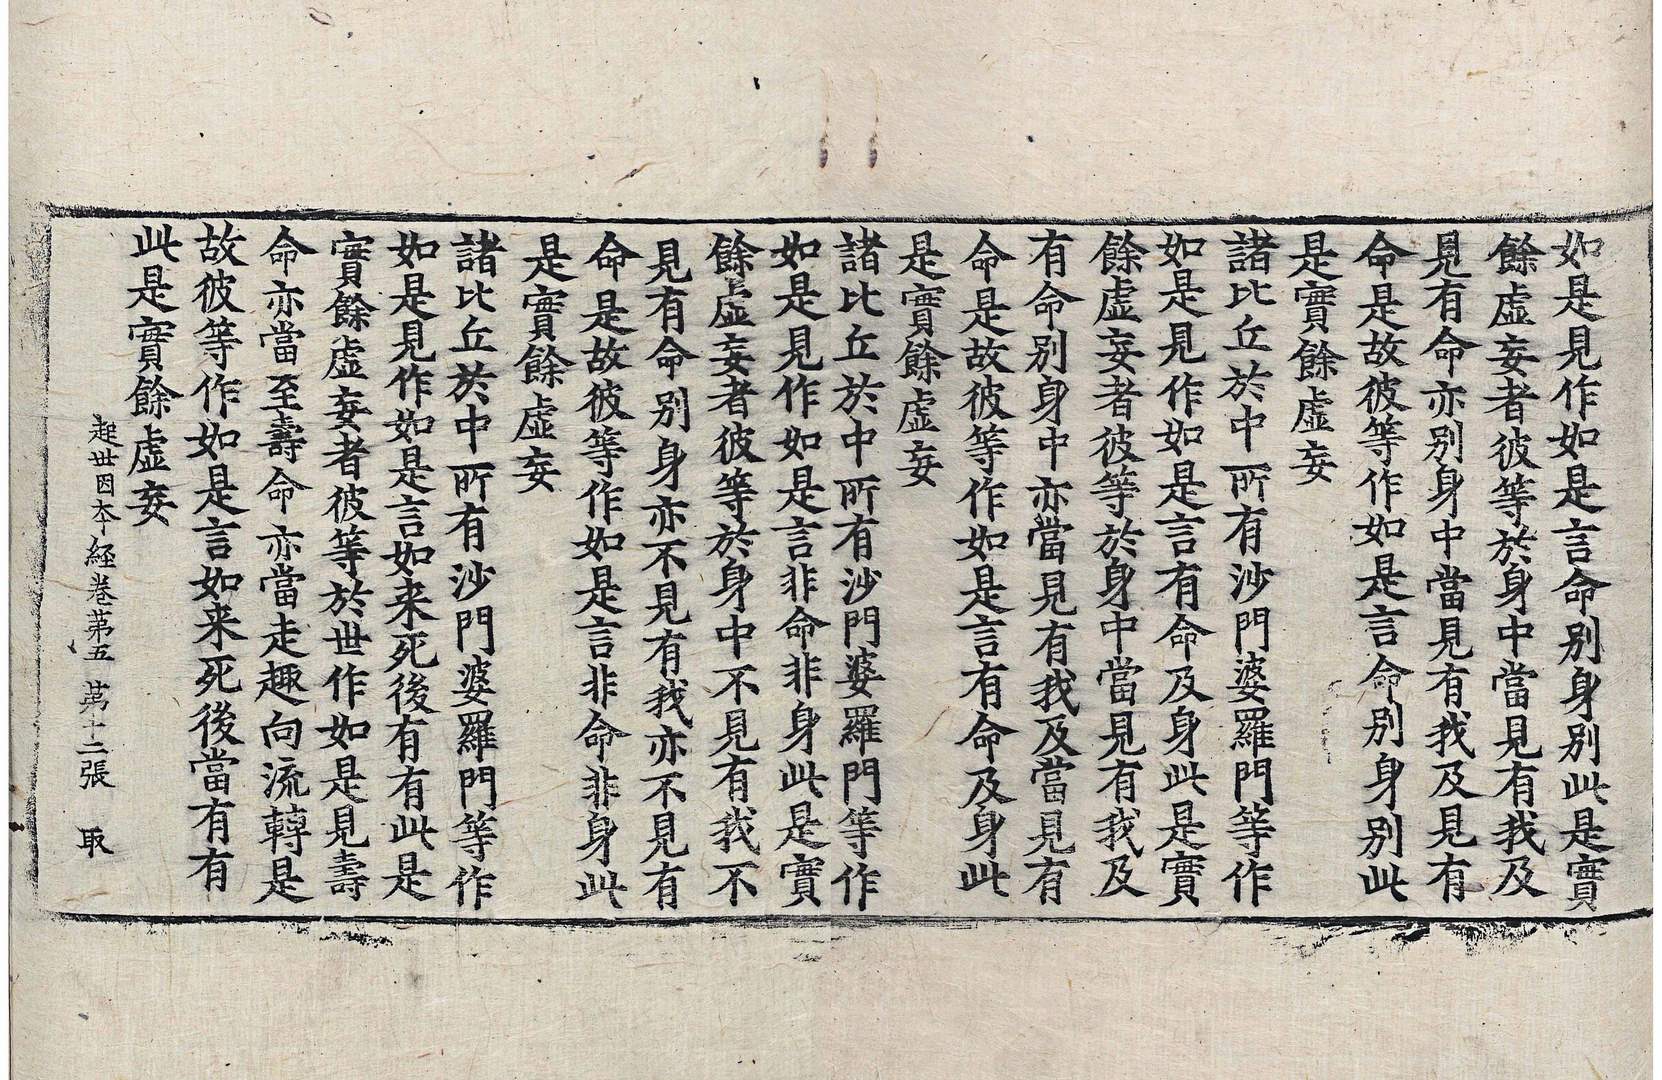 如是見作如是言命別身別此是實
餘虛妄者彼等於身中當見有我及
見有命亦別身中當見有我及見有
命是故彼等作如是言命別身別此
是實餘虛妄
諸比丘於中所有沙門婆羅門等作
如是見作如是言有命及身此是實
餘虛妄者彼等於身中當見有我及
有命別身中亦當見有我及當見有
命是故彼等作如是言有命及身此
是實餘虛妄
諸比丘於中所有沙門婆羅門等作
如是見作如是言非命非身此是實
餘虛妄者彼等於身中不見有我不
見有命別身亦不見有我亦不見有
命是故彼等作如是言非命非身此
是實餘虛妄
諸比丘於中所有沙門婆羅門等作
如是見作如是言如来死後有有此是
實餘虛妄者彼等於世作如是見壽
命亦當至壽命亦當走趣向流轉是
故彼等作如是言如来死後當有有
此是實餘虛妄
起世因本經卷第五 第十二張 取